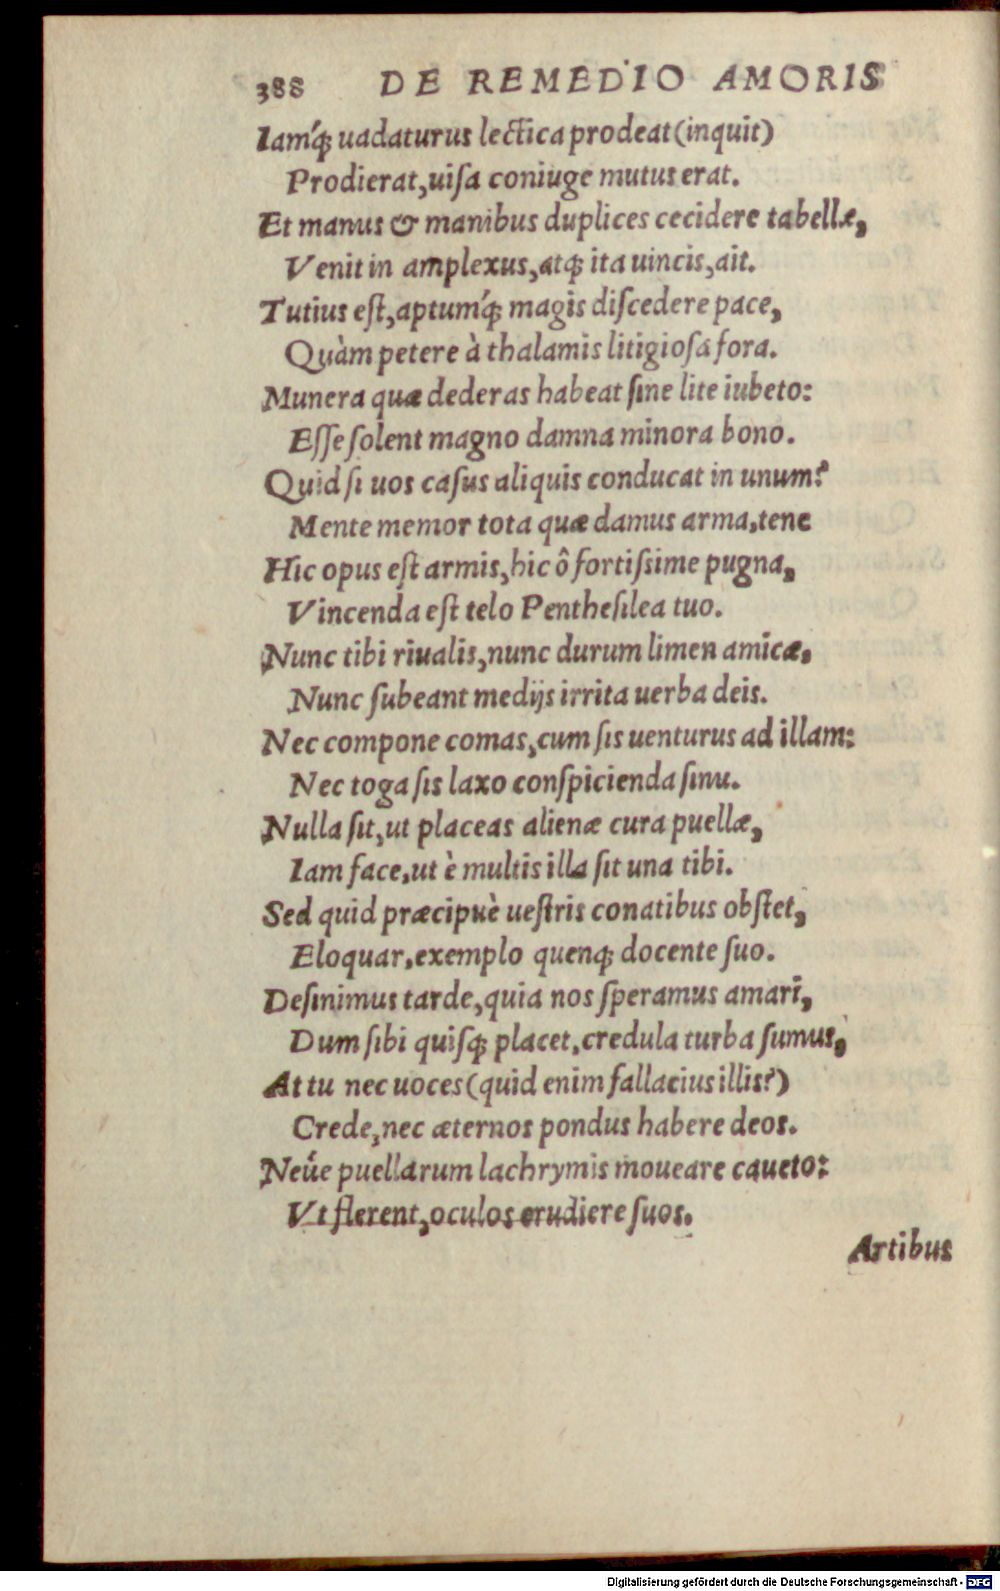 388 DE REMEDIO AMORIS
Iamq́; uadaturus lectica prodeat (inquit)
Prodierat, uiſa coniuge mutus erat.
Et manus & manibus duplices cecidere tabellæ,
Venit in amplexus, atq; ita uincis, ait.
Tutius eſt, aptumq́; magis diſcedere pace,
Quàm petere à thalamis litigioſa fora.
Munera quæ dederas habeat ſine lite iubeto:
Eſſe ſolent magno damna minora bono.
Quid ſi uos caſus aliquis conducat in unum?
Mente memor tota quæ damus arma, tene
Hic opus eſt armis, hic ô fortiſsime pugna,
Vincenda eſt telo Pentheſilea tuo.
Nunc tibi riualis, nunc durum limen amicæ,
Nunc ſubeant medijs irrita uerba deis.
Nec compone comas, cum ſis uenturus ad illam:
Nec toga ſis laxo conſpicienda ſinu.
Nulla ſit, ut placeas alienæ cura puellæ,
Iam face, ut è multis illa ſit una tibi.
Sed quid præcipuè ueſtris conatibus obſtet,
Eloquar, exemplo quenq; docente ſuo.
Deſinimus tarde, quia nos ſperamus amari,
Dum ſibi quiſq; placet, credula turba ſumus,
At tu nec uoces (quid enim fallacius illis?)
Crede, nec æternos pondus habere deos.
Neúe puellarum lachrymis moueare caueto:
Vt flerent, oculos erudiere ſuos.
Artibus
Digitalisierung gefördert durch die Deutsche Forschungsgemeinschaft - DFG